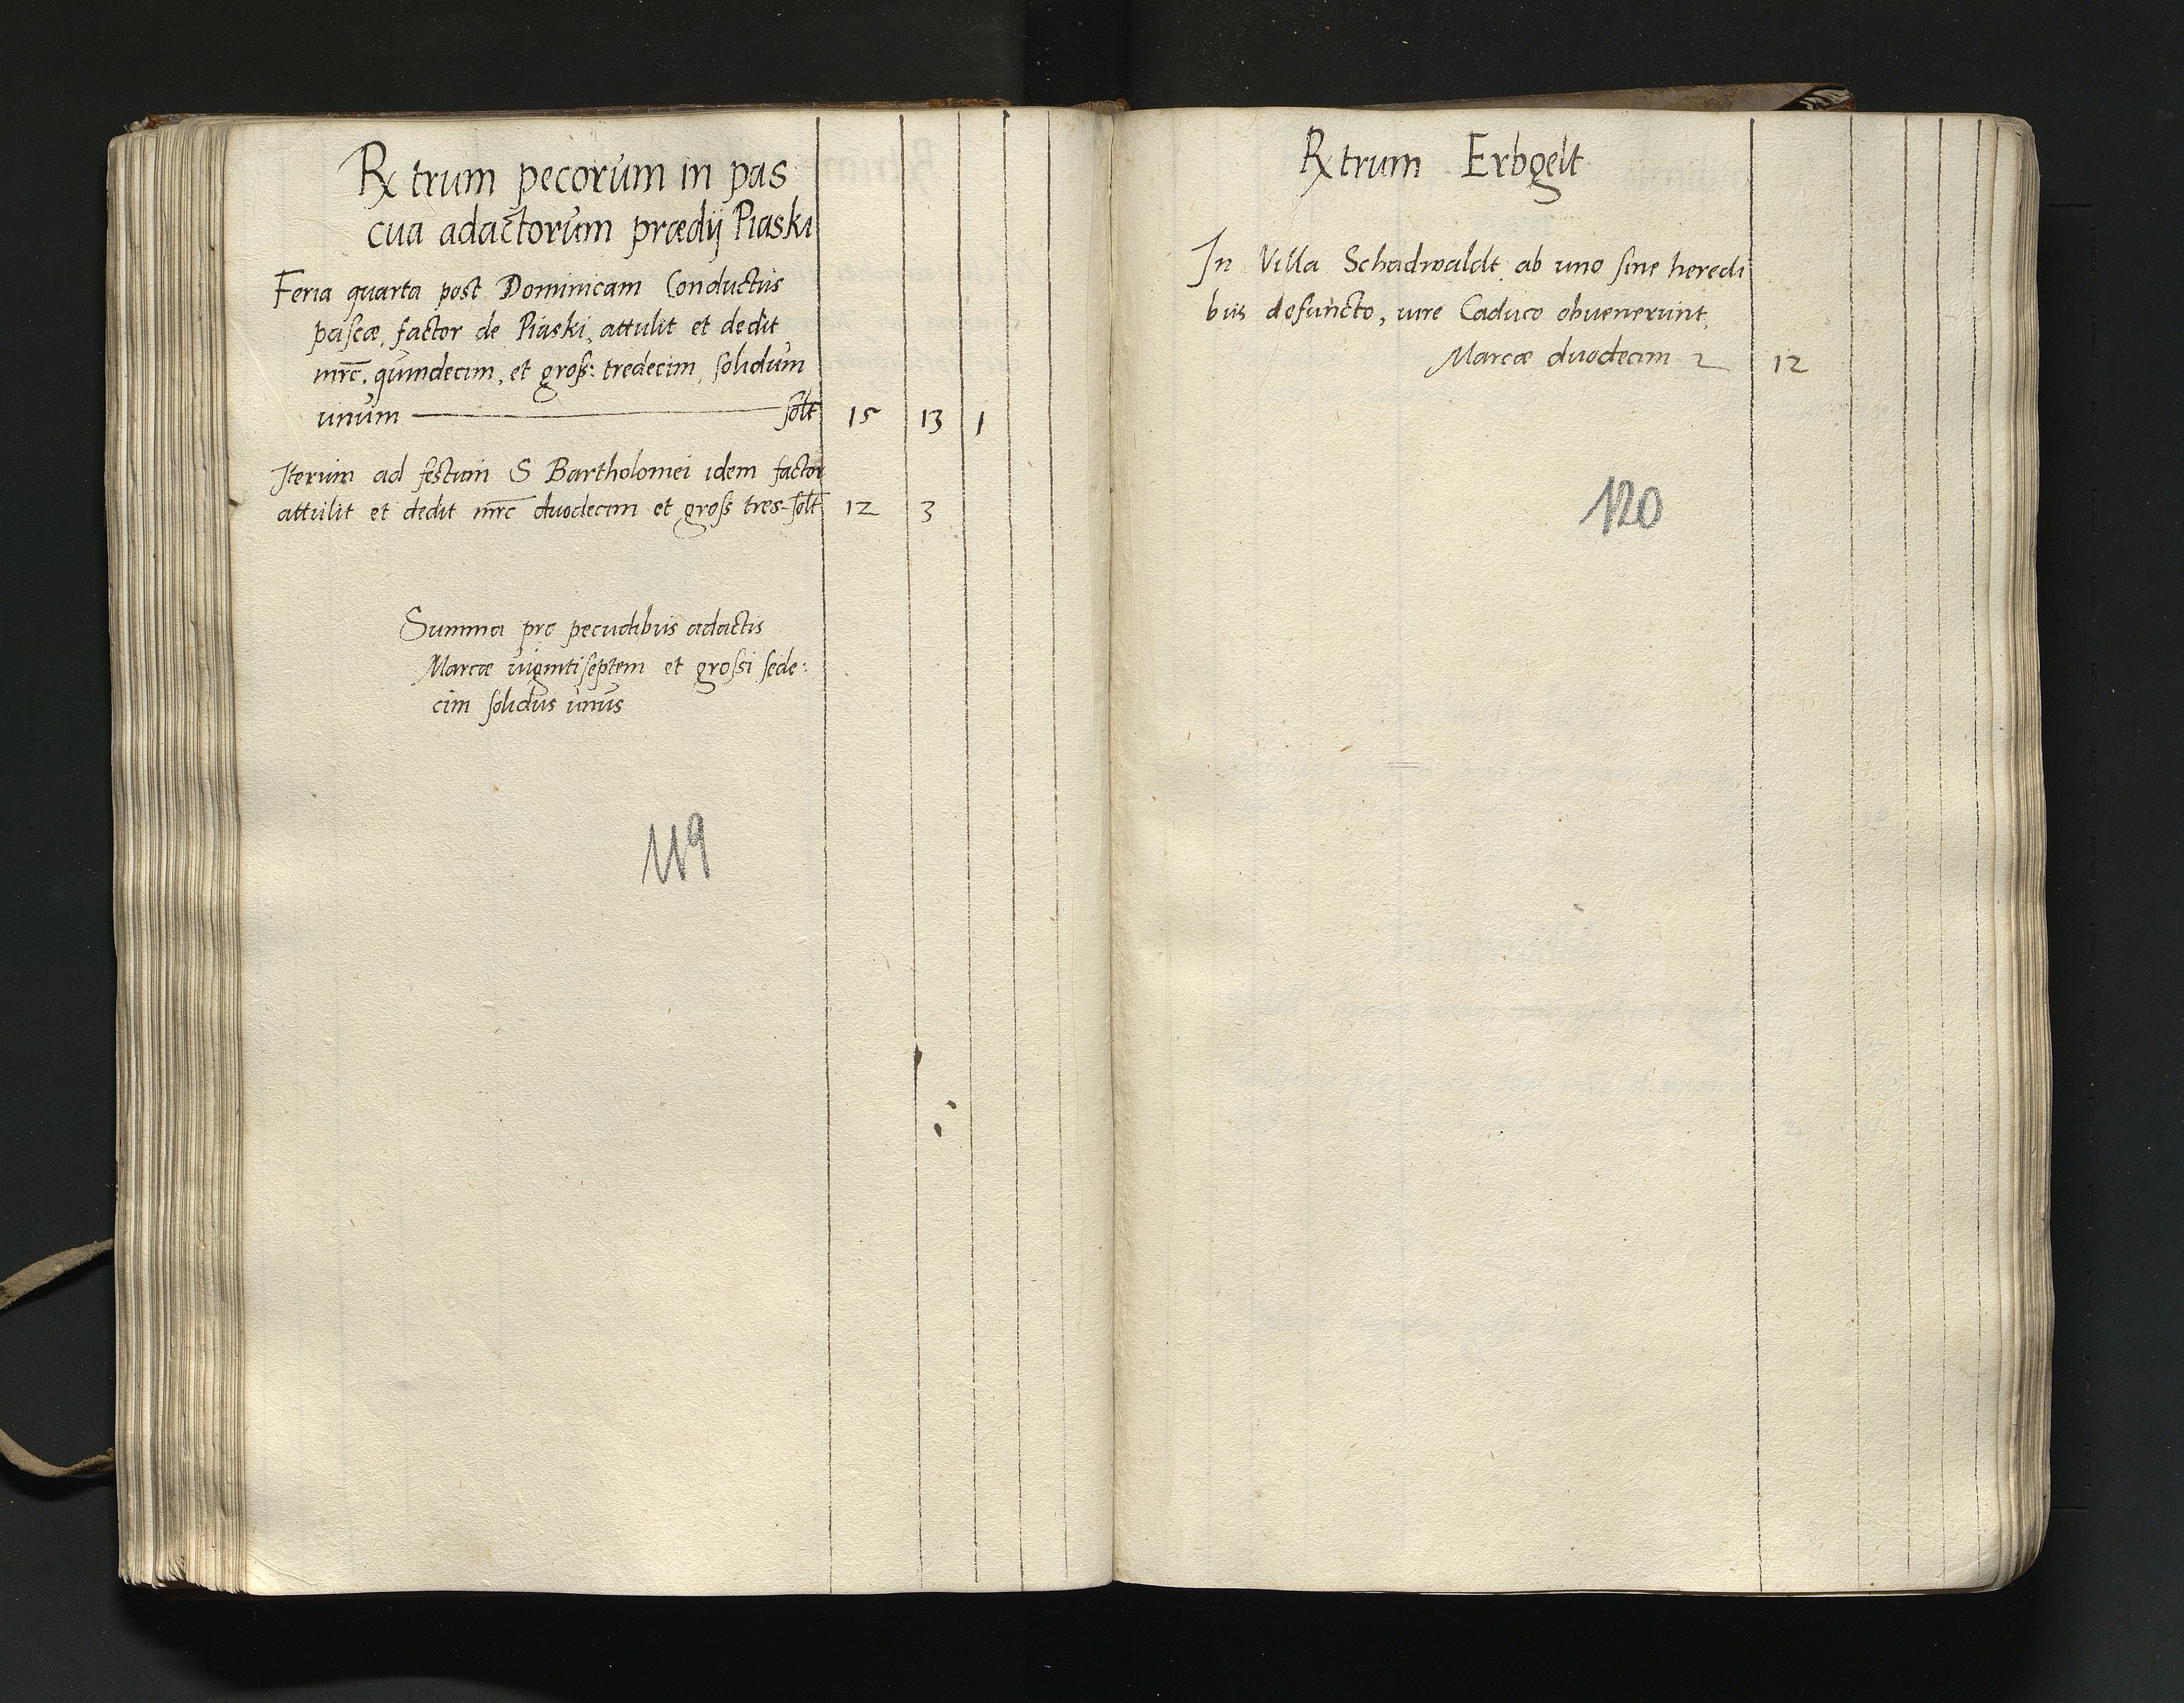 Rx trum pecorum in pas
cua adactorum prædij Piaski
Feria quarta post Dominicam Conductus
pascæ, factor de Piaski, attulit et dedit
mrc. quindecim, et gross: tredecim, solidum
unum — solt 15 13 1
Iterum ad festum S Bartholomei idem factor
attulit et dedit mrc duodecim et gross tres - solt 12 3
Summa pro pecudibus adactis
Marcæ vigintiseptem et grossi sede:
cim solidus unus
119
Rx trum Erbgelt
In Villa Schadwaldt ab uno sine heredi
bus defuncto, iure Caduco obuenerunt,
Marcæ duodecim 12
120